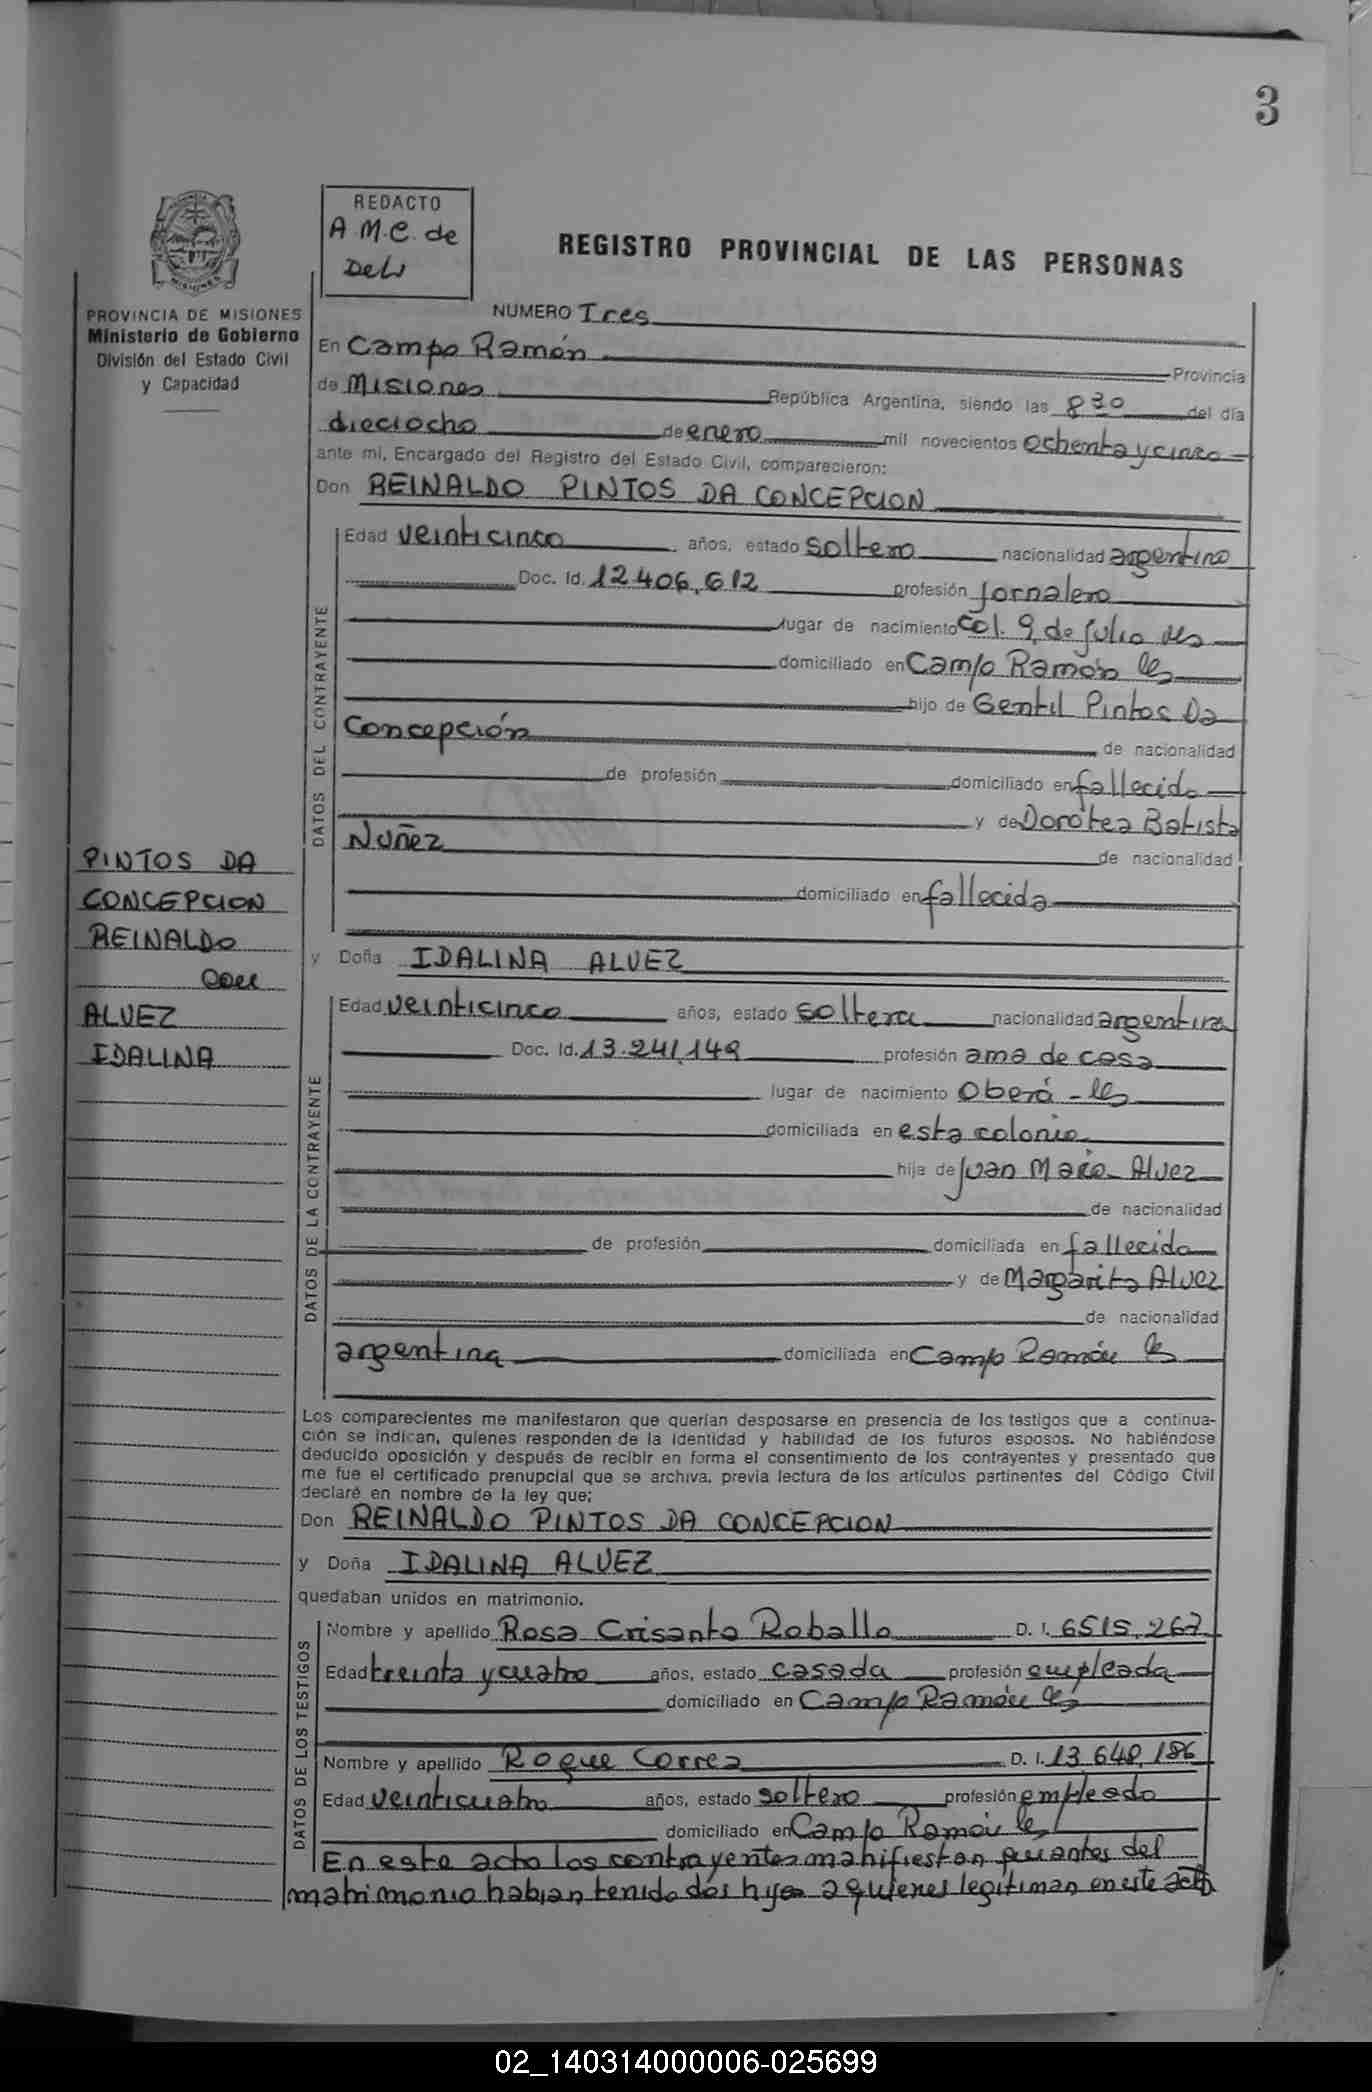 3
REDACTO
A.M.C. de
PROVINCIA DE MISIONES
Ministerio de Gobierno
División del Estado Civil
y Capacidad
REGISTRO PROVINCIAL DE LAS PERSONAS
NUMERO Tres
En Campo Ramón Provincia
de Misiones República Argentina, siendo las 8 30 del día
dieciocho de enero mil novecientos ochenta y cinco
ante mi, Encargado del Registro del Estado Civil, comparecieron:
Don REINALDO PINTOS DA CONCEPCION
DATOS DEL CONTRAYENTE
Edad veinticinco años, estado soltero nacionalidad argentino
Doc. Id. 12.406.612 profesión jornalero
lugar de nacimiento Col. 9 de julio
domiciliado en Campo Ramón
hijo de Gentil Pintos Da
Concepción de nacionalidad
de profesión domiciliado en fallecido
y de Dorotea Batista
Nuñez de nacionalidad
domiciliado en fallecida
PINTOS DA
CONCEPCION
REINALDO
con
ALVEZ
IDALINA
y Doña IDALINA ALVEZ
DATOS DE LA CONTRAYENTE
Edad veinticinco años, estado soltera nacionalidad argentina
Doc. Id. 13.241.149 profesión ama de casa
lugar de nacimiento Oberá
domiciliada en esta colonia
hija de Juan Alvez
de nacionalidad
de profesión domiciliada en fallecido
y de Margarita Alvez
de nacionalidad
argentina domiciliada en Campo Ramón
Los comparecientes me manifestaron que querían desposarse en presencia de los testigos que a continua-
ción se indican, quienes responden de la identidad y habilidad de los futuros esposos. No habiéndose
deducido oposición y después de recibir en forma el consentimiento de los contrayentes y presentado que
me fue el certificado prenupcial que se archiva, previa lectura de los artículos pertinentes del Código Civil
declaré en nombre de la ley que:
Don REINALDO PINTOS DA CONCEPCION
y Doña IDALINA ALVEZ
quedaban unidos en matrimonio.
DATOS DE LOS TESTIGOS
Nombre y apellido Rosa Crisanta Roballo D. I. 6515.267
Edad treinta y cuatro años, estado casada profesión empleada
domiciliado en Campo Ramón
Nombre y apellido Roque Correa D. I. 13.648.186
Edad veinticuatro años, estado soltero profesión empleado
domiciliado en Campo Ramón
En este acto los contrayentes manifiestan que antes del
matrimonio habian tenido dos hijos a quienes legitiman en este acto
02_140314000006-025699